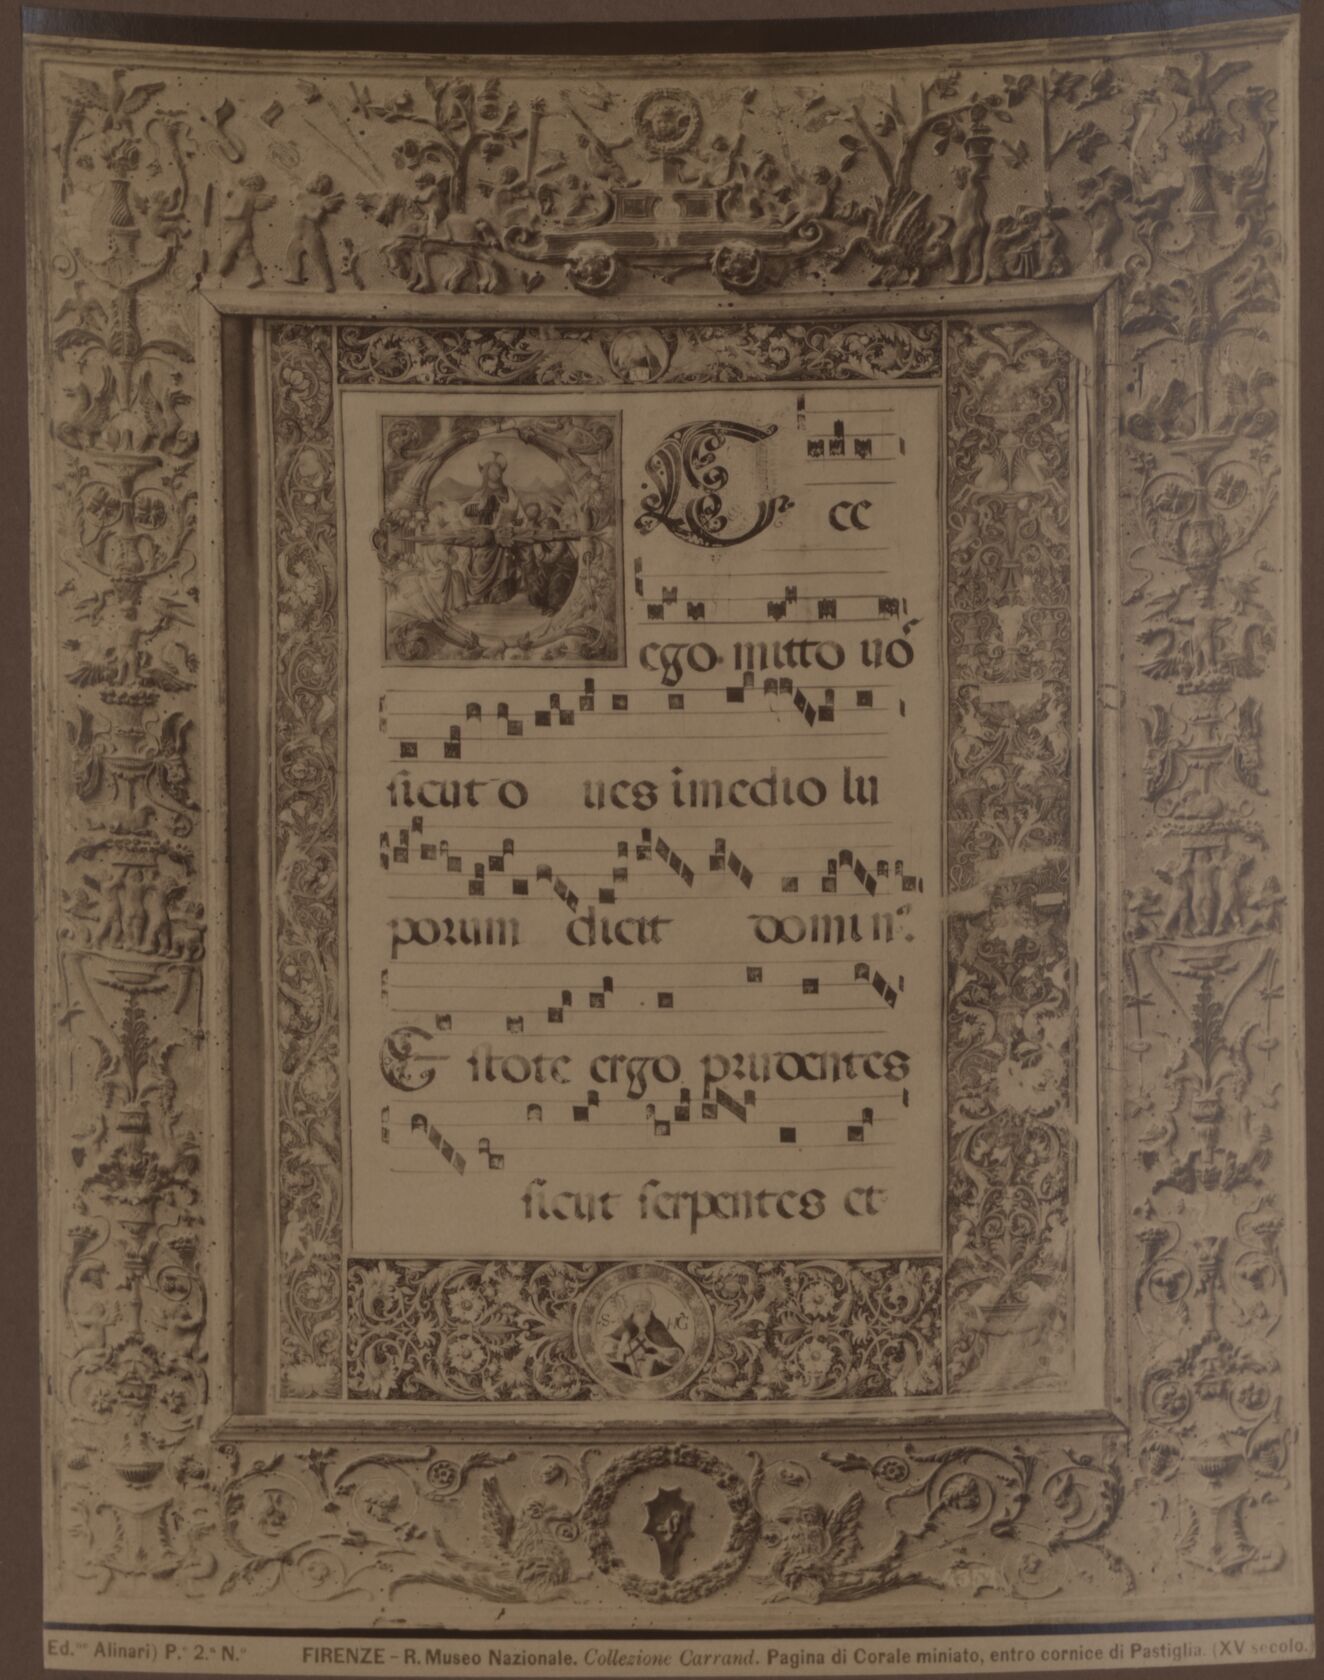 E cce
ego mitto uo᷃
sicut o ues i medio lu
porum dicit domin9.
Estote ergo prudentes
sicut serpentes et
S HG
Ed.ne Alinari) P.e 2.a N.o FIRENZE - R. Museo Nazionale. Collezione Carrand. Pagina di Corale miniato, entro cornice di Pastiglia. (XV secolo.)